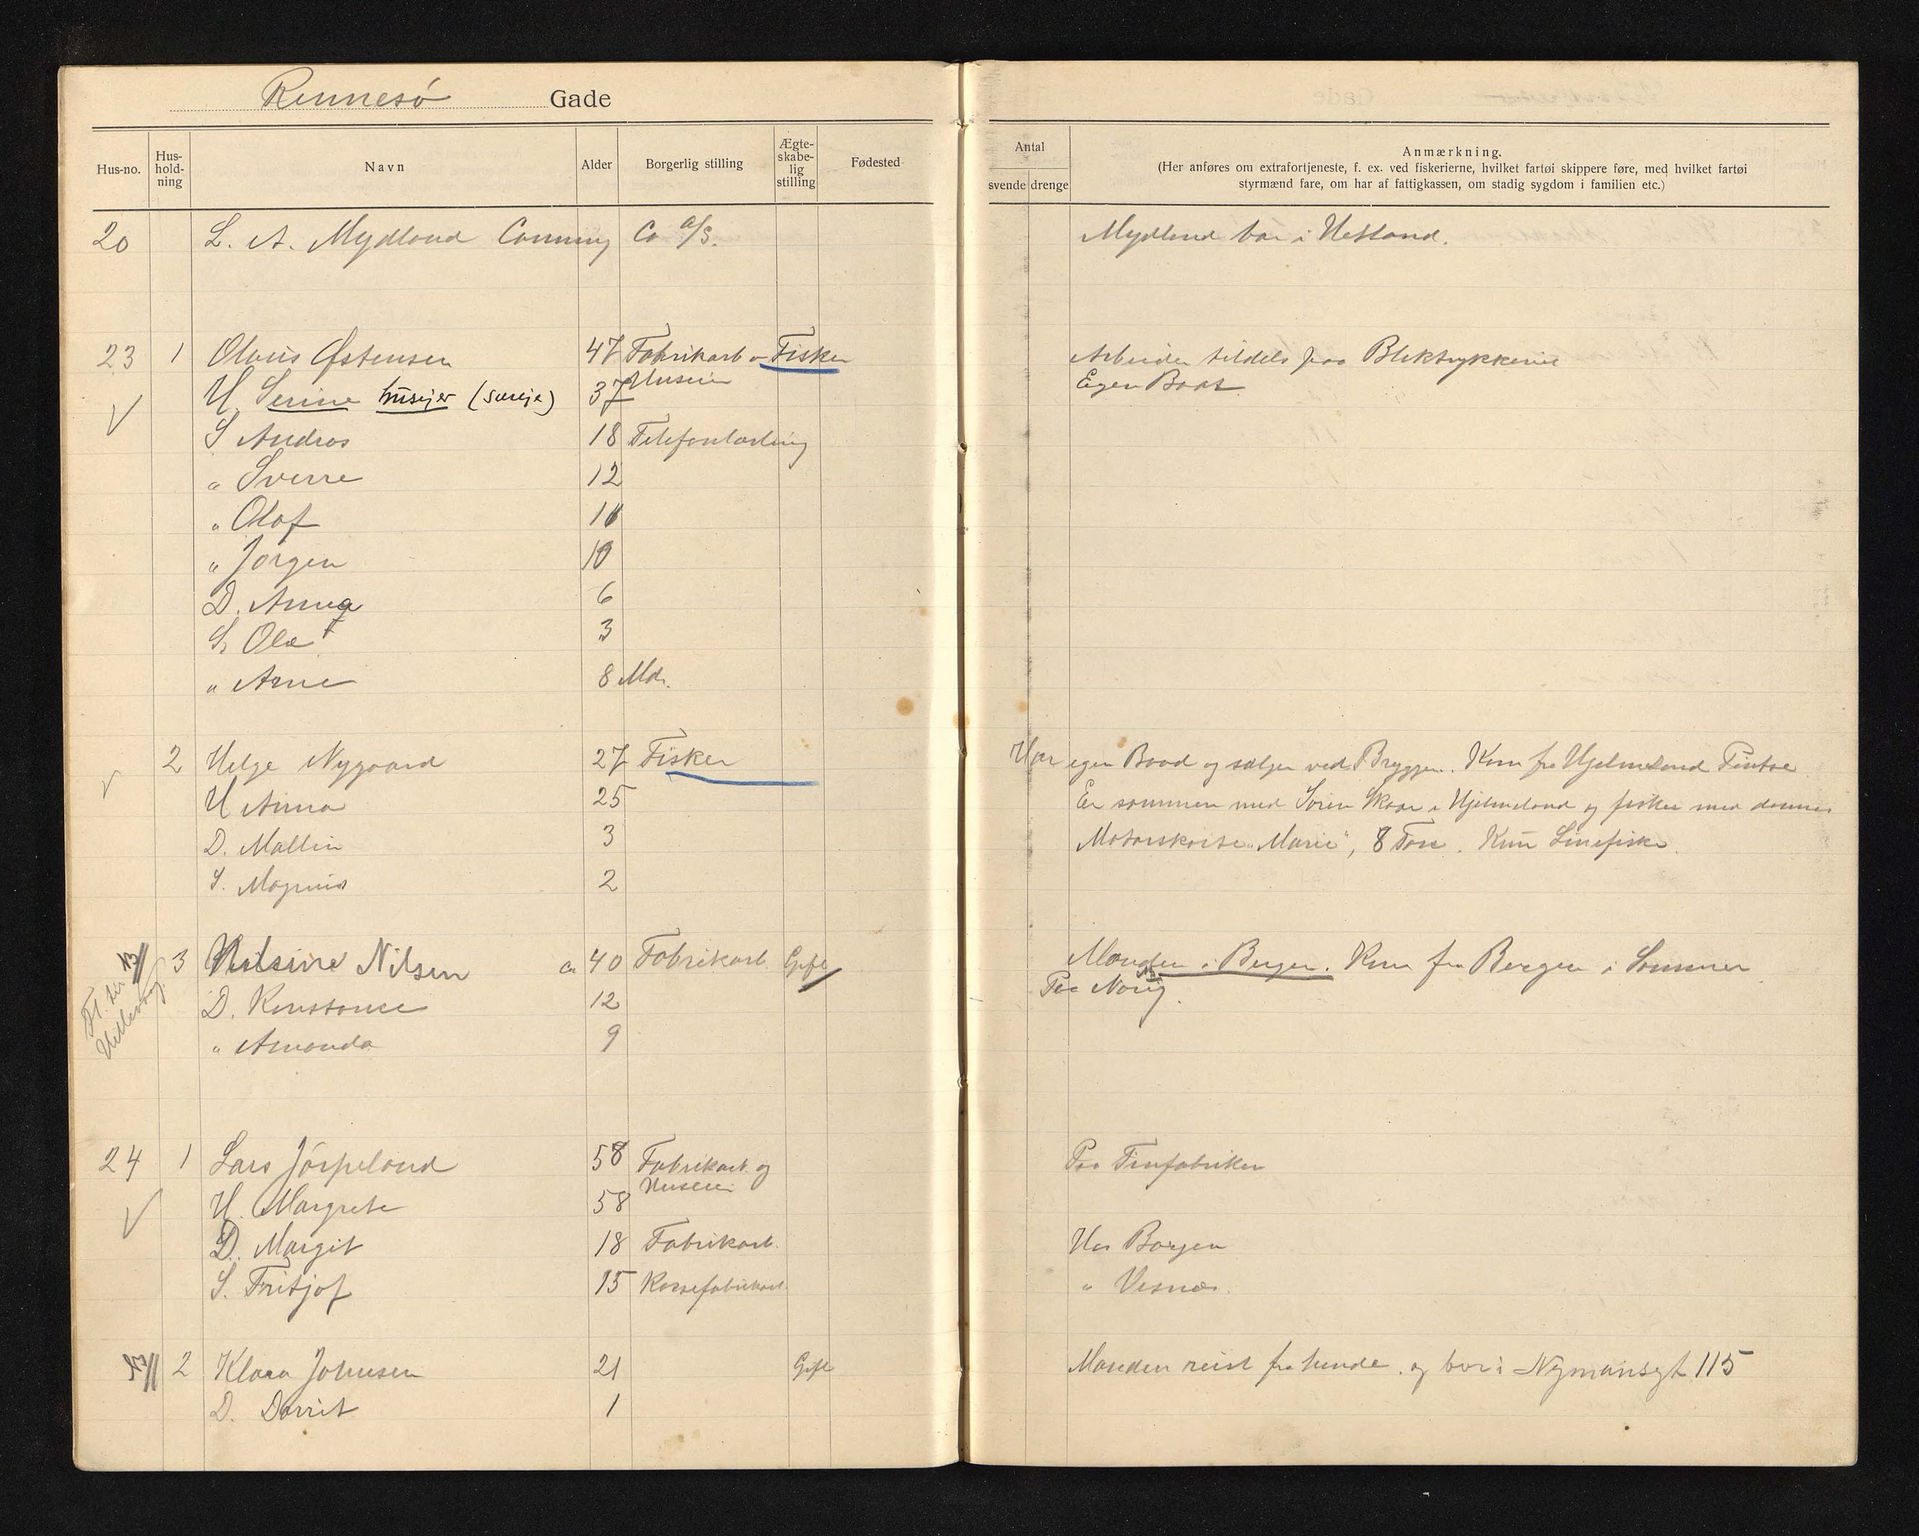 Rennesø Gade
Hus-no. Hus-hold-ning Navn Alder Borgerlig stilling Ægte-skabe-lig stilling Fødested
20 L. A. Mydland Canning Co a/s.
23 1 Olaus Østensen 47 Fabrikarb - Fisker
H. Serine huseier (særeje) 37 Huseier
S Andras 18 Telefonlærling
" Sverre 12
" Olaf 11
" Jørgen 10
D. Anna 6
S. Ole 3
" Arne 8 Md.
2 Helge Nygaard 27 Fisker
H Anna 25
D. Mallin 3
S. Magnus 2
3 Nilsen ca 40 Fabrikarb. Gift
D. Konstanse 12
" Amanda 9
24 1 Lars Jørpeland 58 Fabrikarb. og Huseier
H. Margrete 58
D. Margit 18 Fabrikarb.
S. Fritjof 15 Kassefabrikarb.
2 Klara Johnsen 21 Gift
D. Dorrit 1
Antal
svende drenge
Anmærkning.
(Her anføres om extrafortjeneste, f. ex. ved fiskerierne, hvilket fartøi skippere føre, med hvilket fartøi
styrmænd fare, om har af fattigkassen, om stadig sygdom i familien etc.)
Mydland bor i Hetland.
Arbeider tildels paa Bliktrykkerie
Egen Baat
Har egen Baad og sælger ved Bryggen. Kom fra Hjelmeland
Er sammen med Sven Skaar i Hjelmeland og fisker med dennes
Motorskøite "Marie", 8 Tons. Kun Linefiske.
Manden i Bergen. Kom fra Bergen i Sommer
Paa Norig.
Paa Tinfabriken
Hos Borgen
" Vesnæs.
Manden reist fra hende og bor i Nymansgt 115